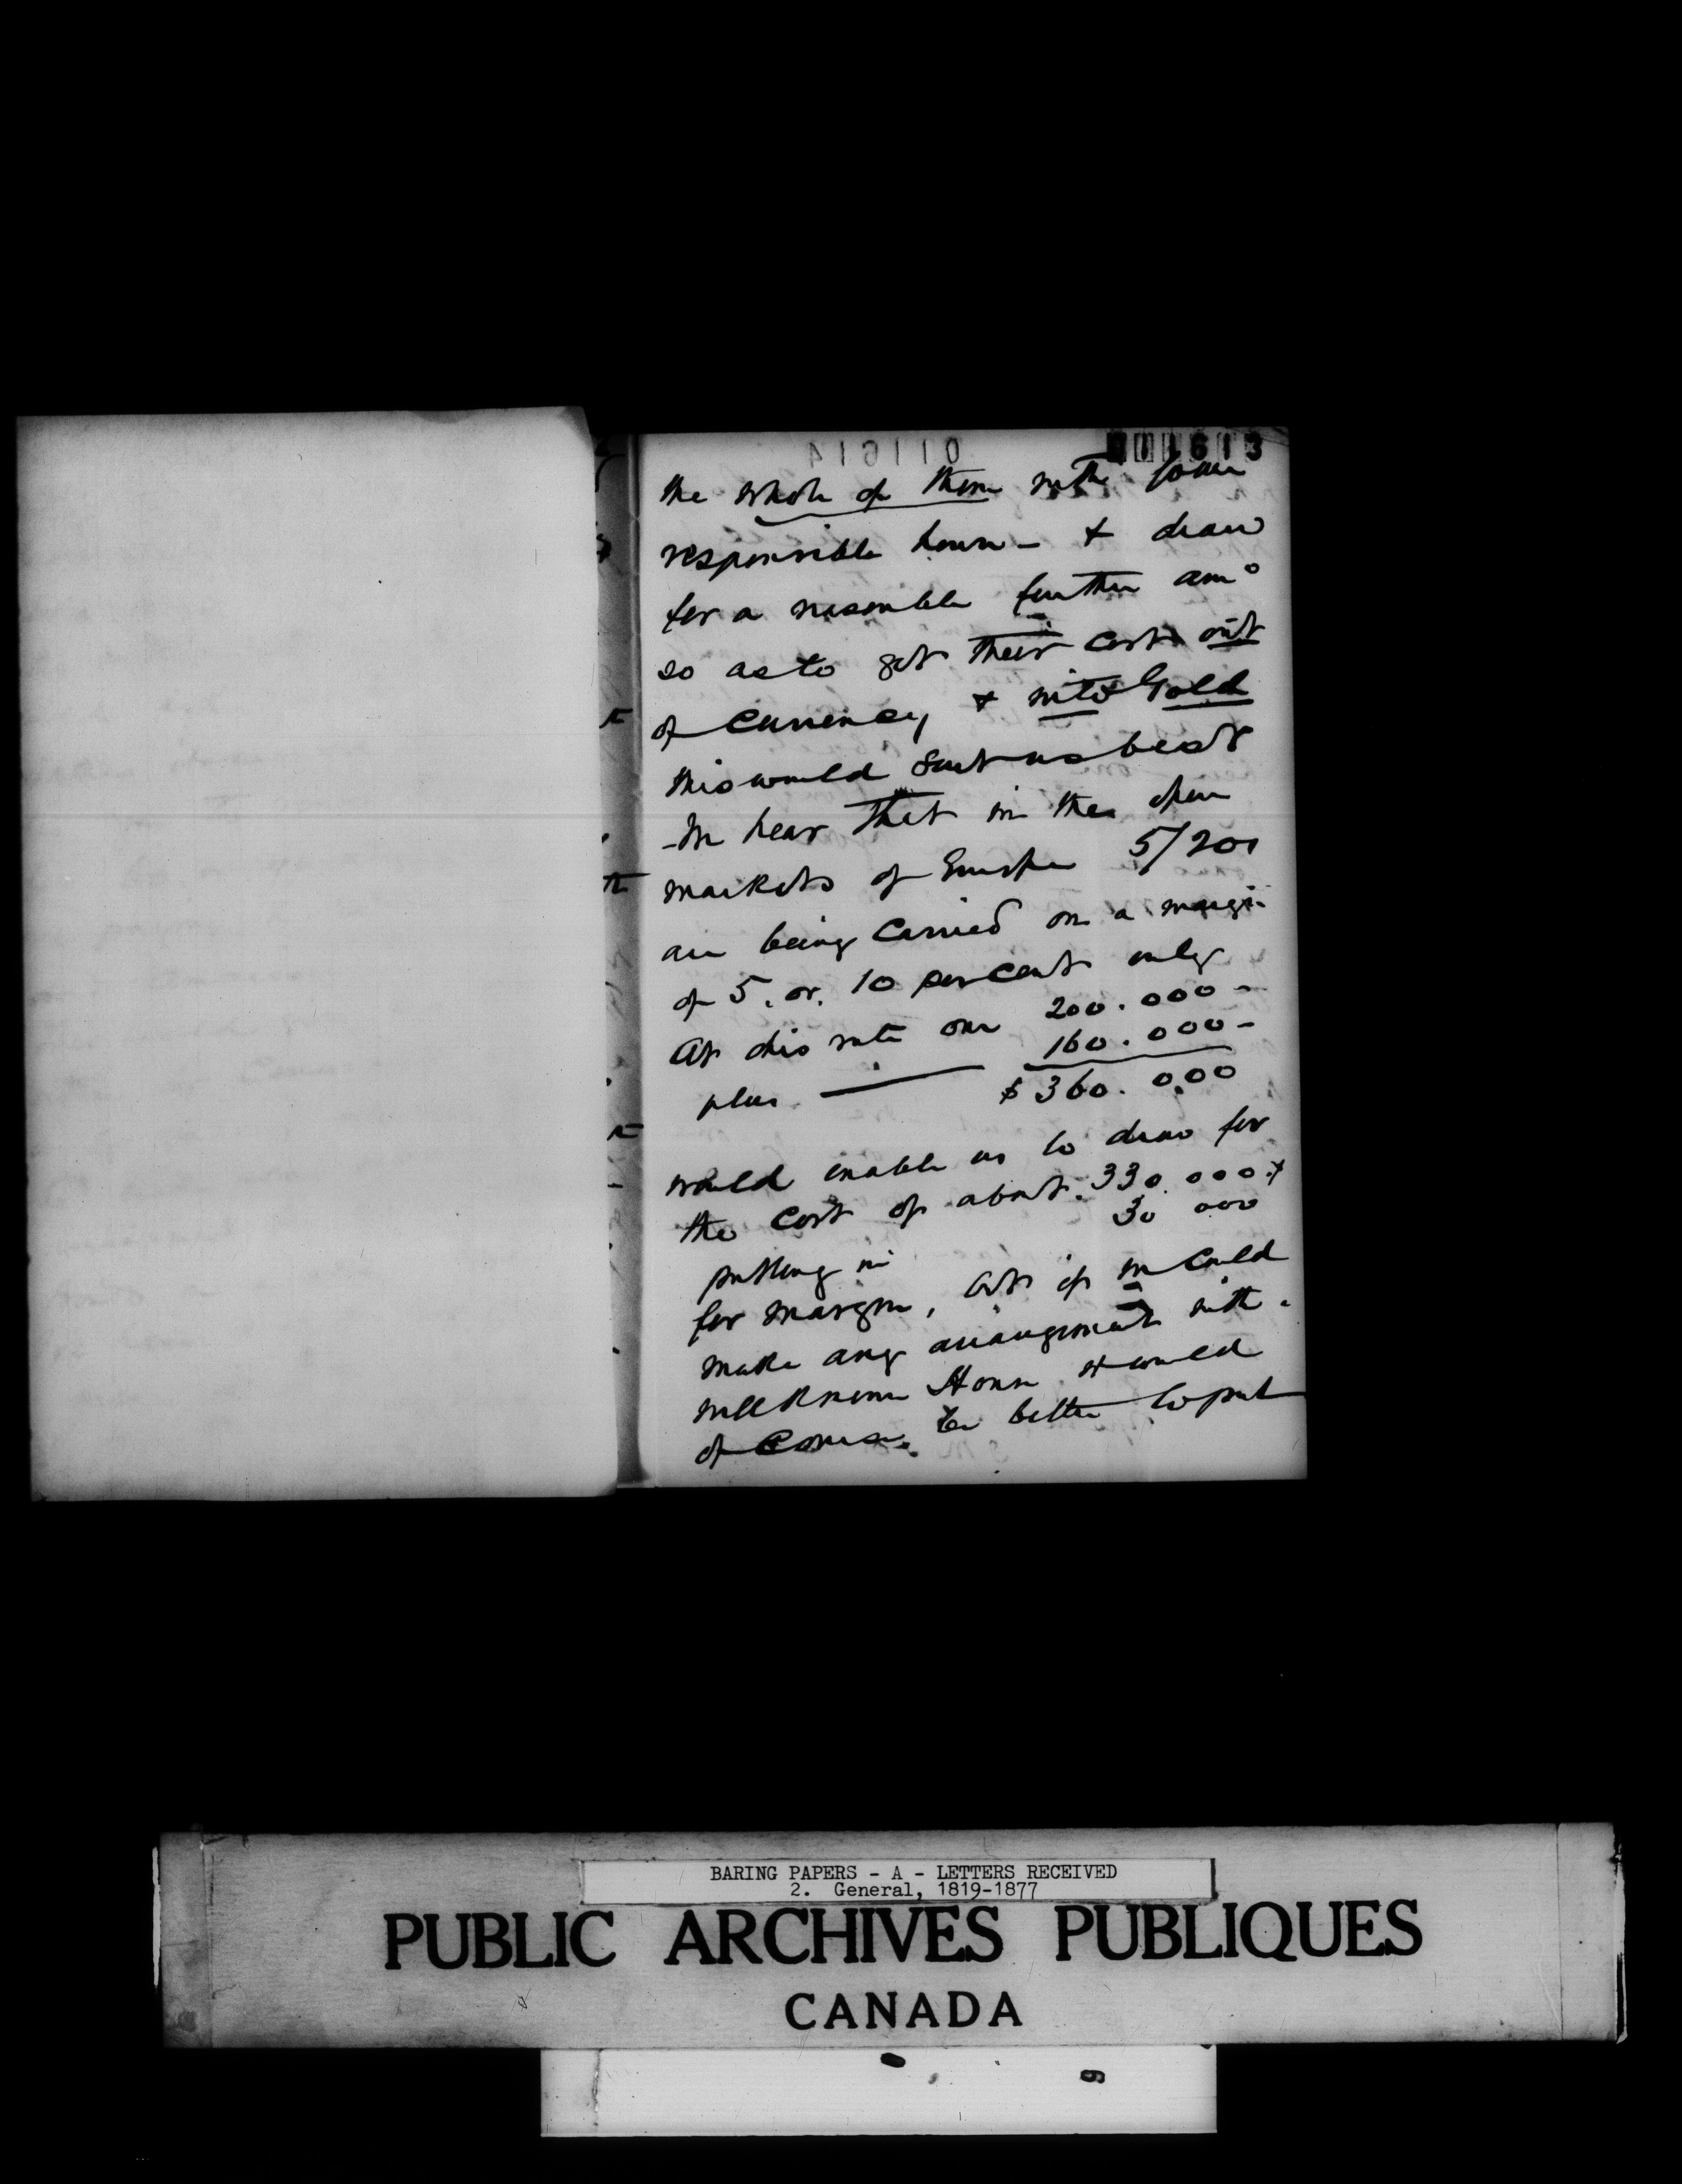 011613
the whole of them with some
responsible house - & draw
for a reasonable further amo
so as to get their cost out
of Currency & into Gold
this would suit us best
- We hear that in the open
markets of Europe 5/20s
are being carried on a margin
of 5. or. 10 per cent only
At this rate our 200.000 -
160.000 -
plus $ 360.000
would enable us to draw for
the cost of about 330.000 &
30 000
putting in
for margin, but if we could
make any arrangement with a
well known House it would
of course be better to put
BARING PAPERS - A - LETTERS RECEIVED
2. General, 1819-1877
PUBLIC ARCHIVES PUBLIQUES
CANADA